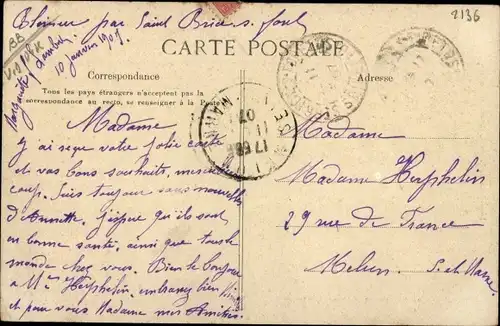 par Saint Brice s. foret
2136
BB
10 janvier 1907
CARTE POSTALE
Correspondance
Adresse
Tous les pays étrangers n'acceptent pas la
correspondance au recto, se renseigner à la Poste
Madame
J'ai reçue votre jolie carte
et vos bons souhaits, merci beau
coup. Suis toujours sans nouvelles
d'Annette. J'espère qu'ils sont
en bonne santé, ainsi que tout le
monde chez vous. Bien le bonjour
à Mr Herphelin, embrassez bien
et pour vous Madame mes Amitiés
Madame
Madame Herphelin
29 rue de France
Melun S. et Marne